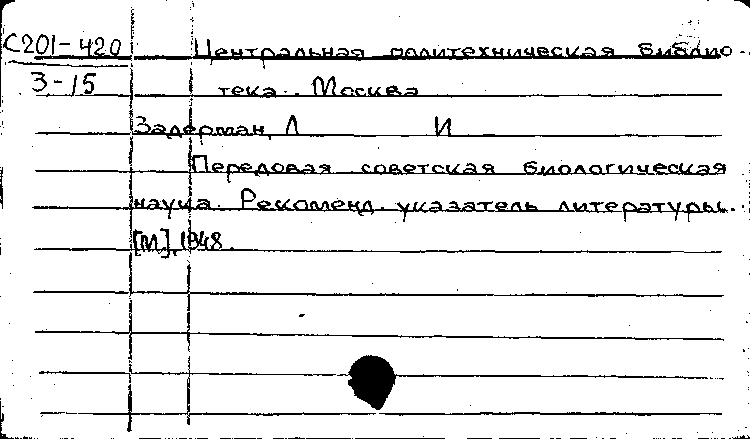 С201-420 Центральная политехническая библио-
3-15 тека. Москва
Задерман, Л И
Передовая советская биологическая
наука. Рекоменд. указатель литературы.
[М], 1948.